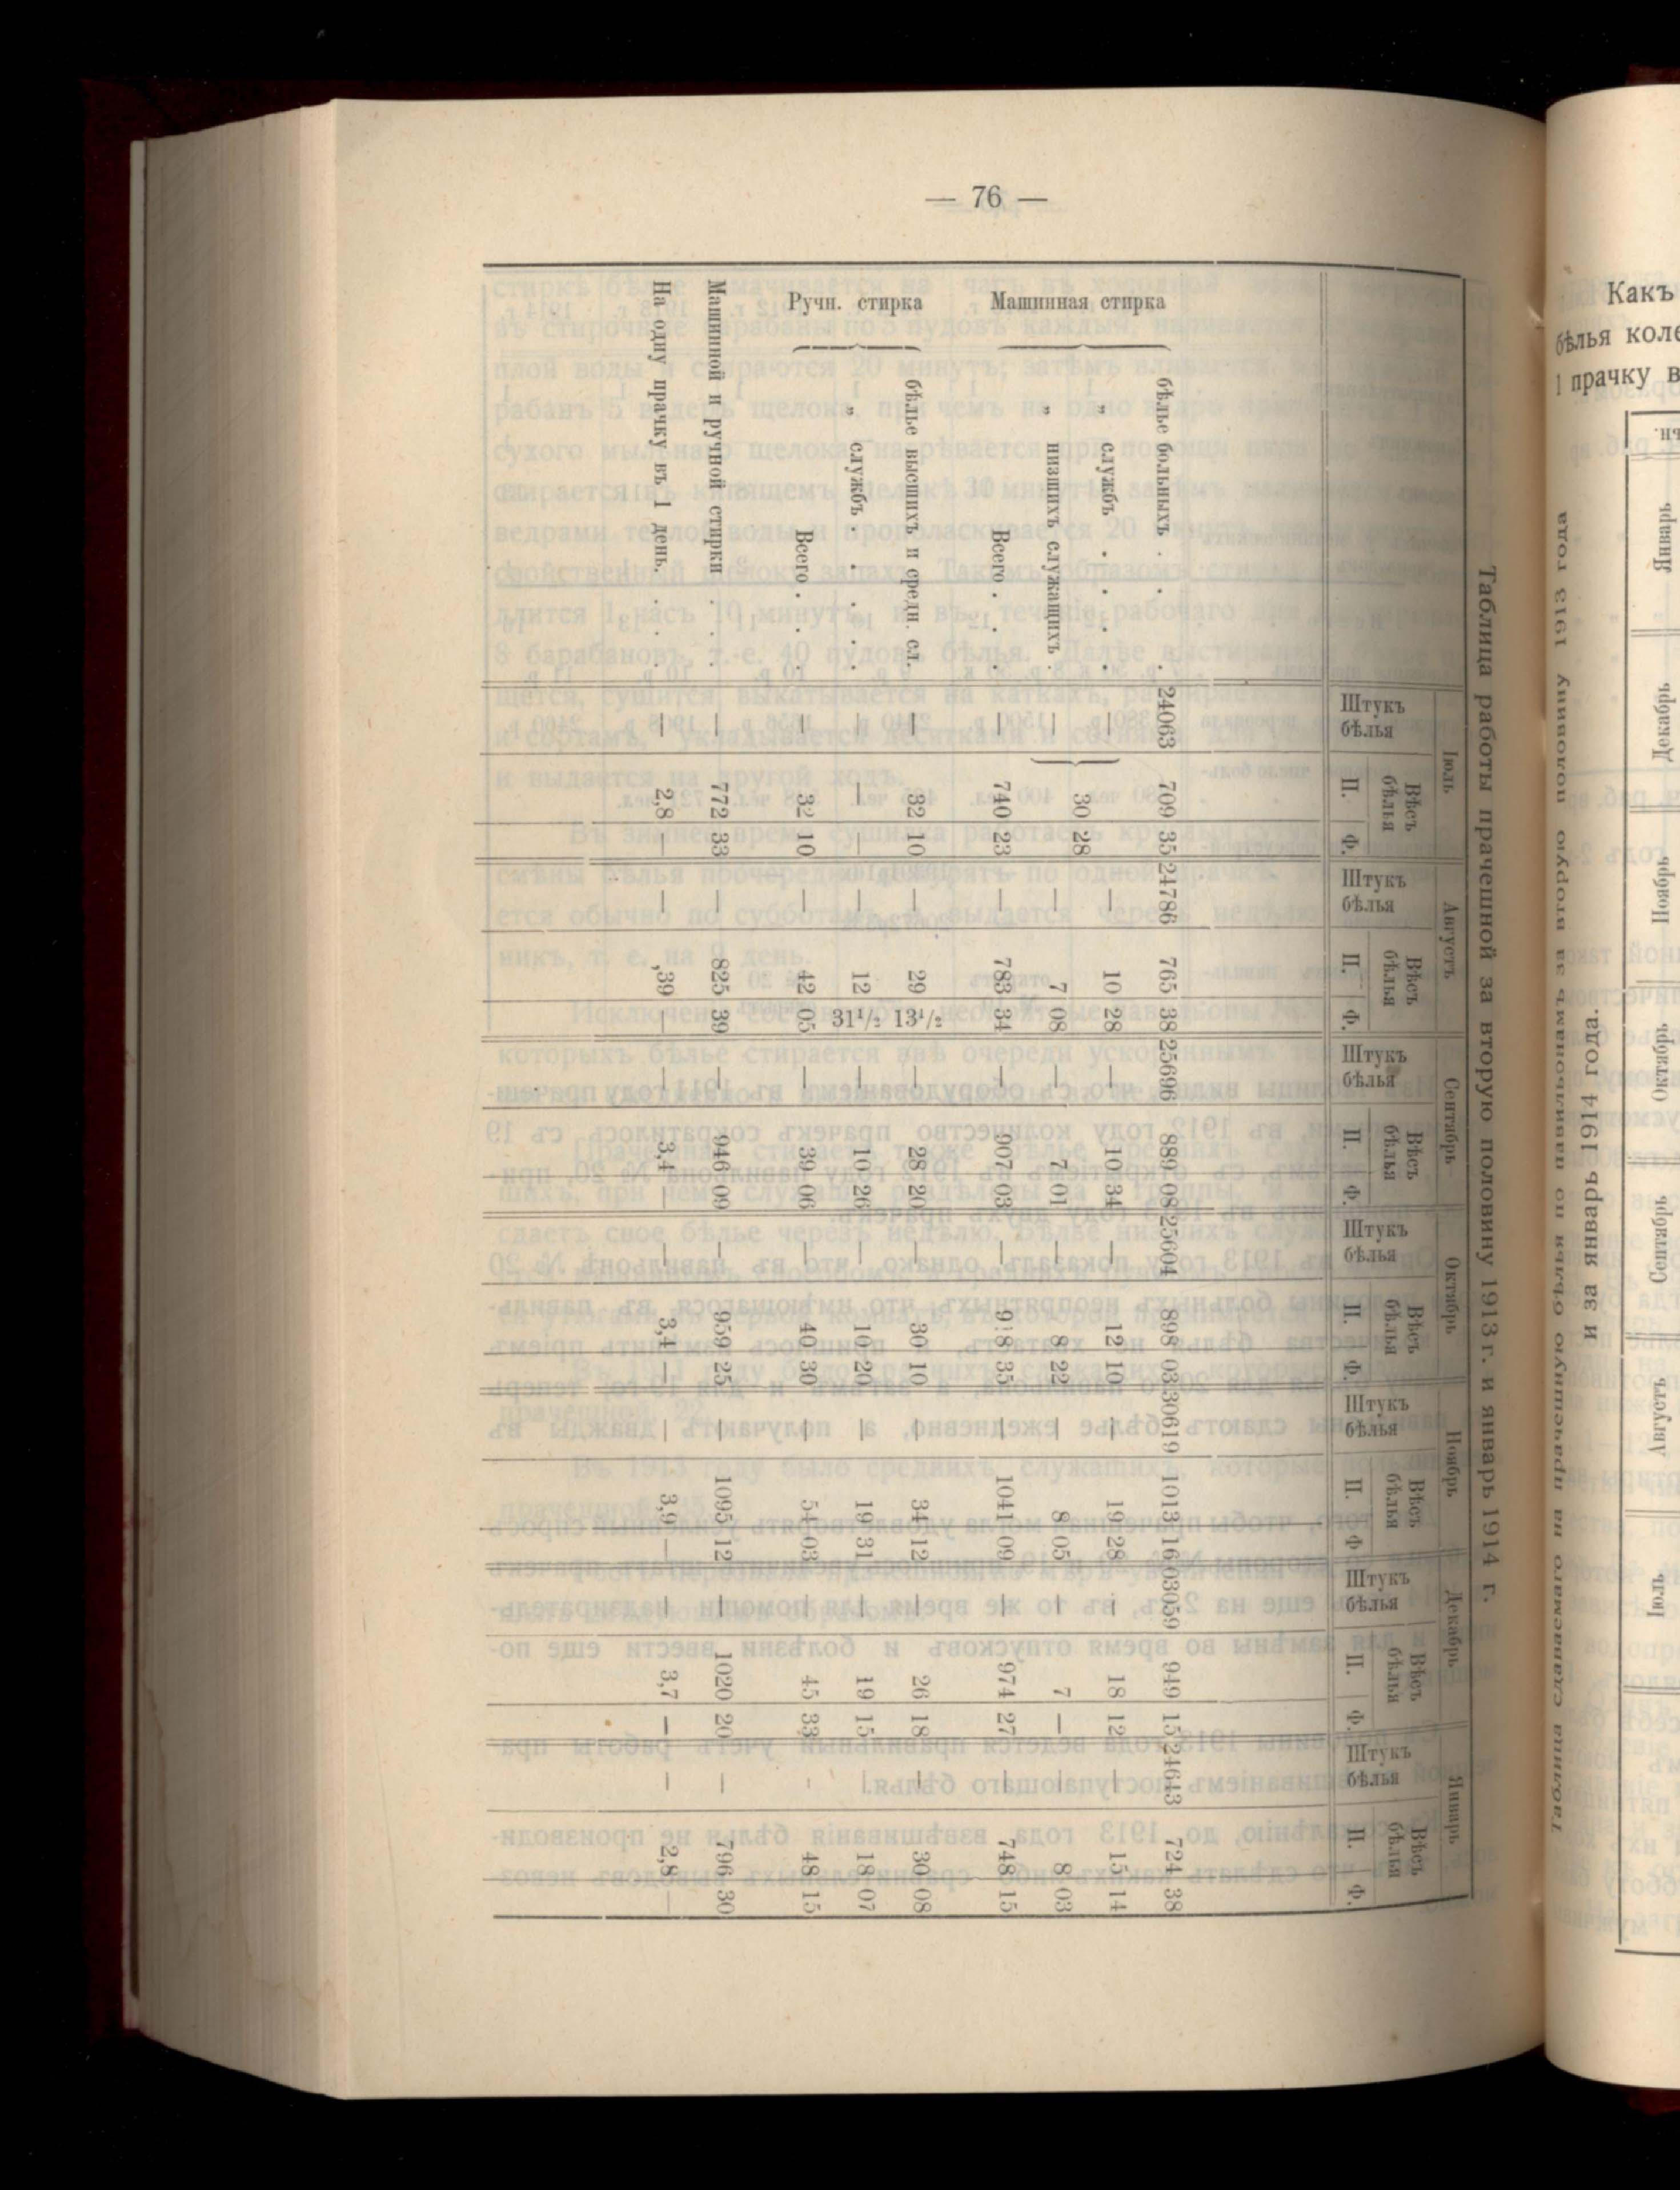 — 76 —
Таблица работы прачешной за вторую половину 1913 г. и январь 1914 г.
Іюль Августъ Сентябрь Октябрь Ноябрь Декабрь Январь
Штукъ бѣлья Вѣсъ бѣлья П. Ф. Штукъ бѣлья Вѣсъ бѣлья П. Ф. Штукъ бѣлья Вѣсъ бѣлья П. Ф. Штукъ бѣлья Вѣсъ бѣлья П. Ф. Штукъ бѣлья Вѣсъ бѣлья П. Ф Штукъ бѣлья Вѣсъ бѣлья П. Ф. Штукъ бѣлья Вѣсъ бѣлья П. Ф.
Машинная стирка
бѣлье больныхъ . . . 24063 709 35 24786 765 38 25696 889 08 25604 898 03 30619 1013 16 03059 949 15 24643 724 38
„ службъ . . . . — 30 28 — 10 28 — 10 34 — 12 10 — 19 28 — 18 12 — 15 14
„ низшихъ служащихъ . — — 7 08 — 7 01 — 8 22 — 8 05 — 7 — — 8 03
Всего . . . — 740 23 — 783 34 — 907 03 — 918 35 — 1041 09 — 974 27 — 748 15
Ручн. стирка
бѣлье высшихъ и средн. сл. — 32 10 — 29 13¹/₂ — 28 20 — 30 10 — 34 12 — 26 18 — 30 08
„ службъ . . . . — — — — 12 31¹/₂ — 10 26 — 10 20 — 19 31 — 19 15 — 18 07
Всего . . . — 32 10 — 42 05 — 39 06 — 40 30 — 54 03 — 45 33 — 48 15
Машинной и ручной стирки . . . — 772 33 — 825 39 — 946 09 — 959 25 — 1095 12 — 1020 20 — 796 30
На одну прачку въ 1 день. . . . — 2,8 — — ,39 — — 3,4 — — 3,4 — — 3,9 — — 3,7 — — 2,8 —
Какъ
бѣлья коле
1 прачку в
Таблица сдаваемаго на прачешную бѣлья по павильонамъ за вторую половину 1913 года
и за январь 1914 года.
Іюль Августъ Сентябрь Октябрь Ноябрь Декабрь Январь